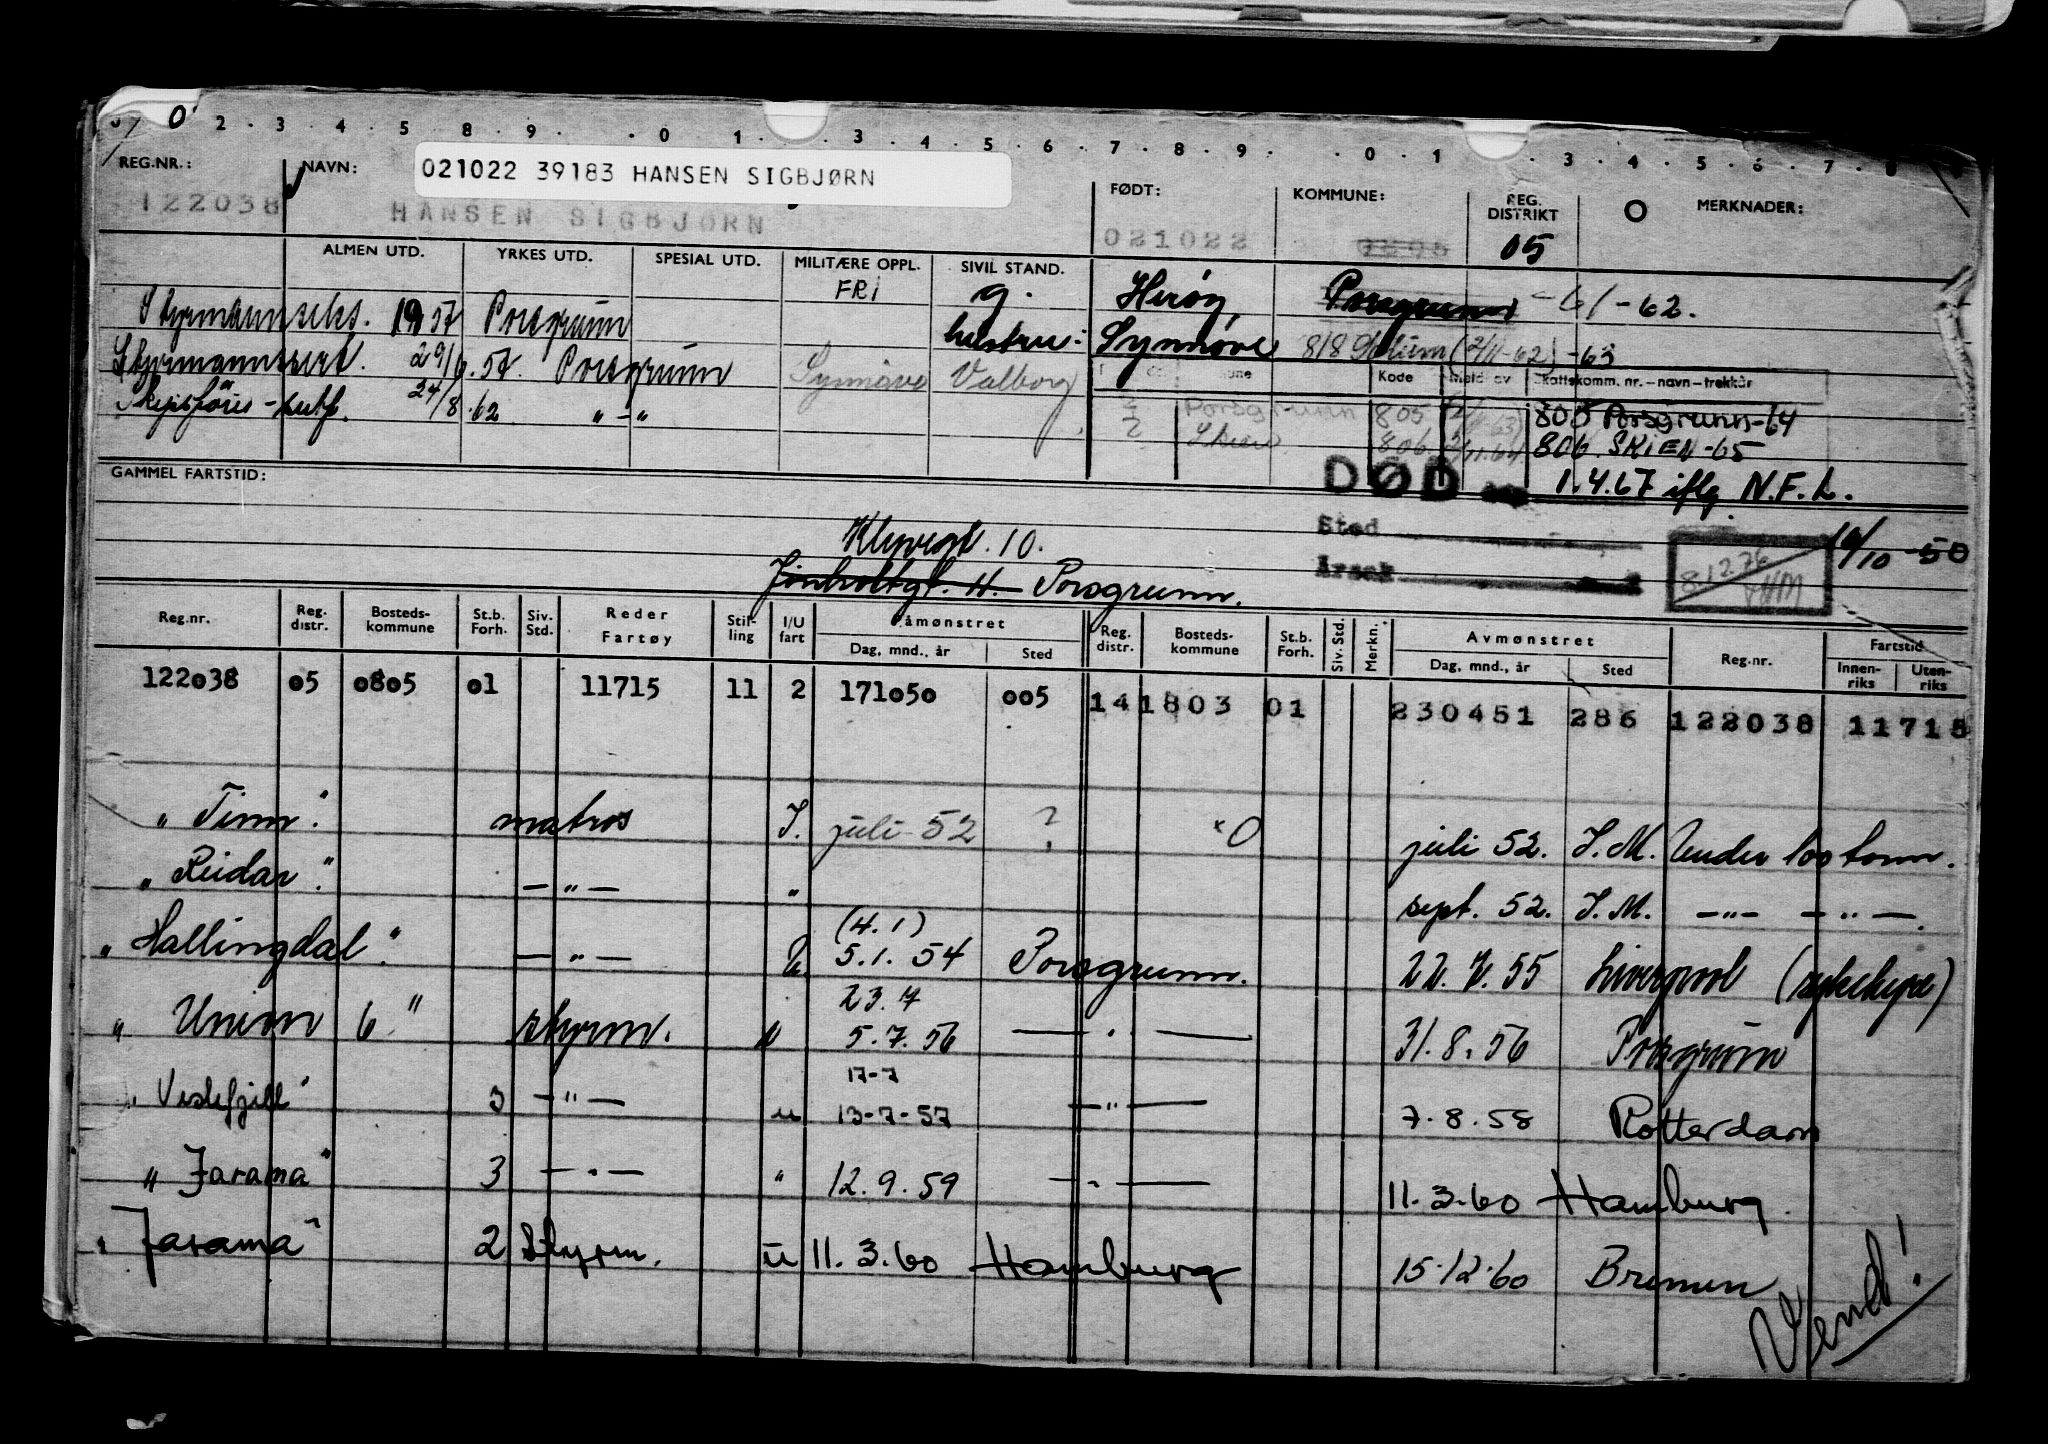 0 2 . 3 . 4 . 5 8 . 9 . . 0 1 . 3 . 4 . 5 . 6 . 7 . 8 . 9 . . 0 . 1 . 3 . 4 . 5 . 6 . 7 . 8
REG.NR.: NAVN: 021022 39183 HANSEN SIGBJØRN FØDT: KOMMUNE: REG. DISTRIKT O MERKNADER:
122038 HANSEN SIGBJØRN 021022 05
ALMEN UTD. YRKES UTD. SPESIAL UTD. MILITÆRE OPPL. SIVIL STAND.
FRI g. Herøy Porsgrunn -61-62.
Styrmannseks. 1957 Porsgrunn hustru: Synnøve 818 Solum (2/11-62) -63
Styrmannssert. 29/6.57. Porsgrunn Synnøve Valborg Kode Meld. av Skattskomm. nr. – navn – trekkår
Skipsfører-sertf. 24/8.62 " - " Porsgrunn 805 805 Porsgrunn-64
Skien 806 806 SKIEN-65
GAMMEL FARTSTID: DØD 1.4.67 iflg N.F.L.
Klyvegt. 10. Sted 10/10-50
Porsgrunn. Årsak 81276
Reg.nr. Reg. distr. Bosteds-kommune St.b. Forh. Siv. Std. Reder Fartøy Stilling I/U fart Påmønstret Dag, mnd., år Sted Reg. distr. Bosteds-kommune St.b. Forh. Siv. Std. Merkn. Avmønstret Dag, mnd., år Sted Reg.nr. Fartstid Innen-riks Uten-riks
122038 05 0805 01 11715 11 2 171050 005 14 1803 01 230451 286 122038 11715
"Tinn". matros I. juli 52 ? x0 juli 52. I.M. Under 100 tonn.
"Reidar". — " — " sept. 52. I.M. — " — — " —
(4.1)
"Hallingdal". — " — U 5.1.54 Porsgrunn. 22.7.55 Liverpool (sykehype)
23.7
"Union 6" styrm. " 5.7.56 — " — 31.8.56 Porsgrunn
17-7
"Vestefjell" 3 — " — u 13-7-57 — " — 7.8.58 Rotterdam
"Jarama" 3 — " — " 12.9.59 — " — 11.3.60 Hamburg
"Jarama" 2 Styrm. u 11.3.60 Hamburg 15.12.60 Bremen
Vend!